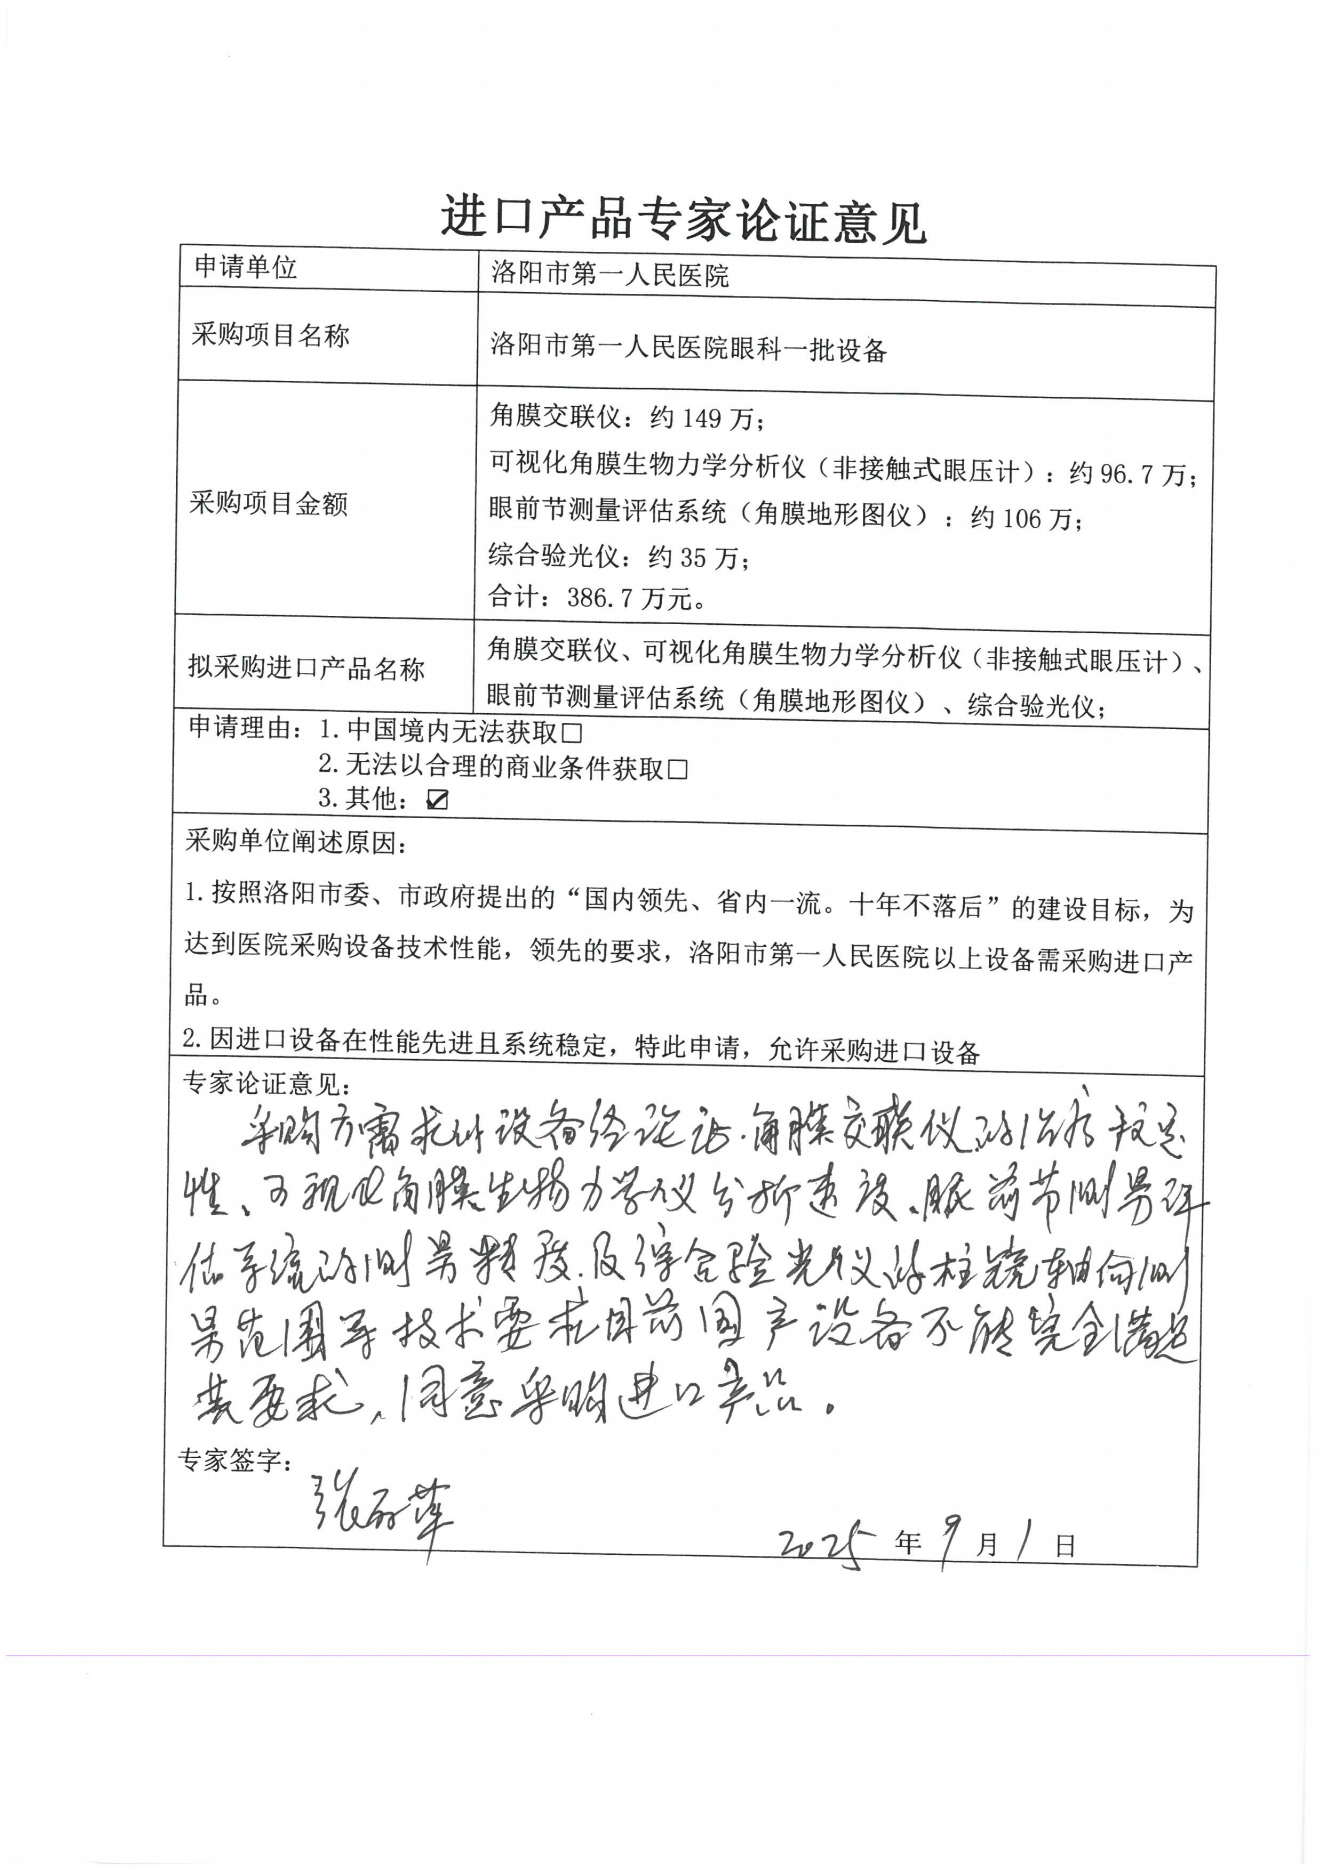 进口产品专家论证意见
申请单位
洛阳市第一人民医院
采购项目名称
洛阳市第一人民医院眼科一批设备
采购项目金额
角膜交联仪：约 149 万；
可视化角膜生物力学分析仪（非接触式眼压计）：约 96.7 万；
眼前节测量评估系统（角膜地形图仪）：约 106 万；
综合验光仪：约 35 万；
合计：386.7 万元。
拟采购进口产品名称
角膜交联仪、可视化角膜生物力学分析仪（非接触式眼压计）、
眼前节测量评估系统（角膜地形图仪）、综合验光仪；
申请理由：1.中国境内无法获取□
2.无法以合理的商业条件获取□
3.其他：☑
采购单位阐述原因：
1.按照洛阳市委、市政府提出的“国内领先、省内一流。十年不落后”的建设目标，为
达到医院采购设备技术性能，领先的要求，洛阳市第一人民医院以上设备需采购进口产
品。
2.因进口设备在性能先进且系统稳定，特此申请，允许采购进口设备
专家论证意见：
采购方需求的设备经论证.角膜交联仪的治疗稳定
性、可视化角膜生物力学仪分析速度、眼前节测量评
估系统的测量精度.及综合验光仪的柱镜轴向测
量范围等技术要求目前国产设备不能完全满足
其要求，同意采购进口产品。
专家签字：
张萍
2025 年 9 月 1 日